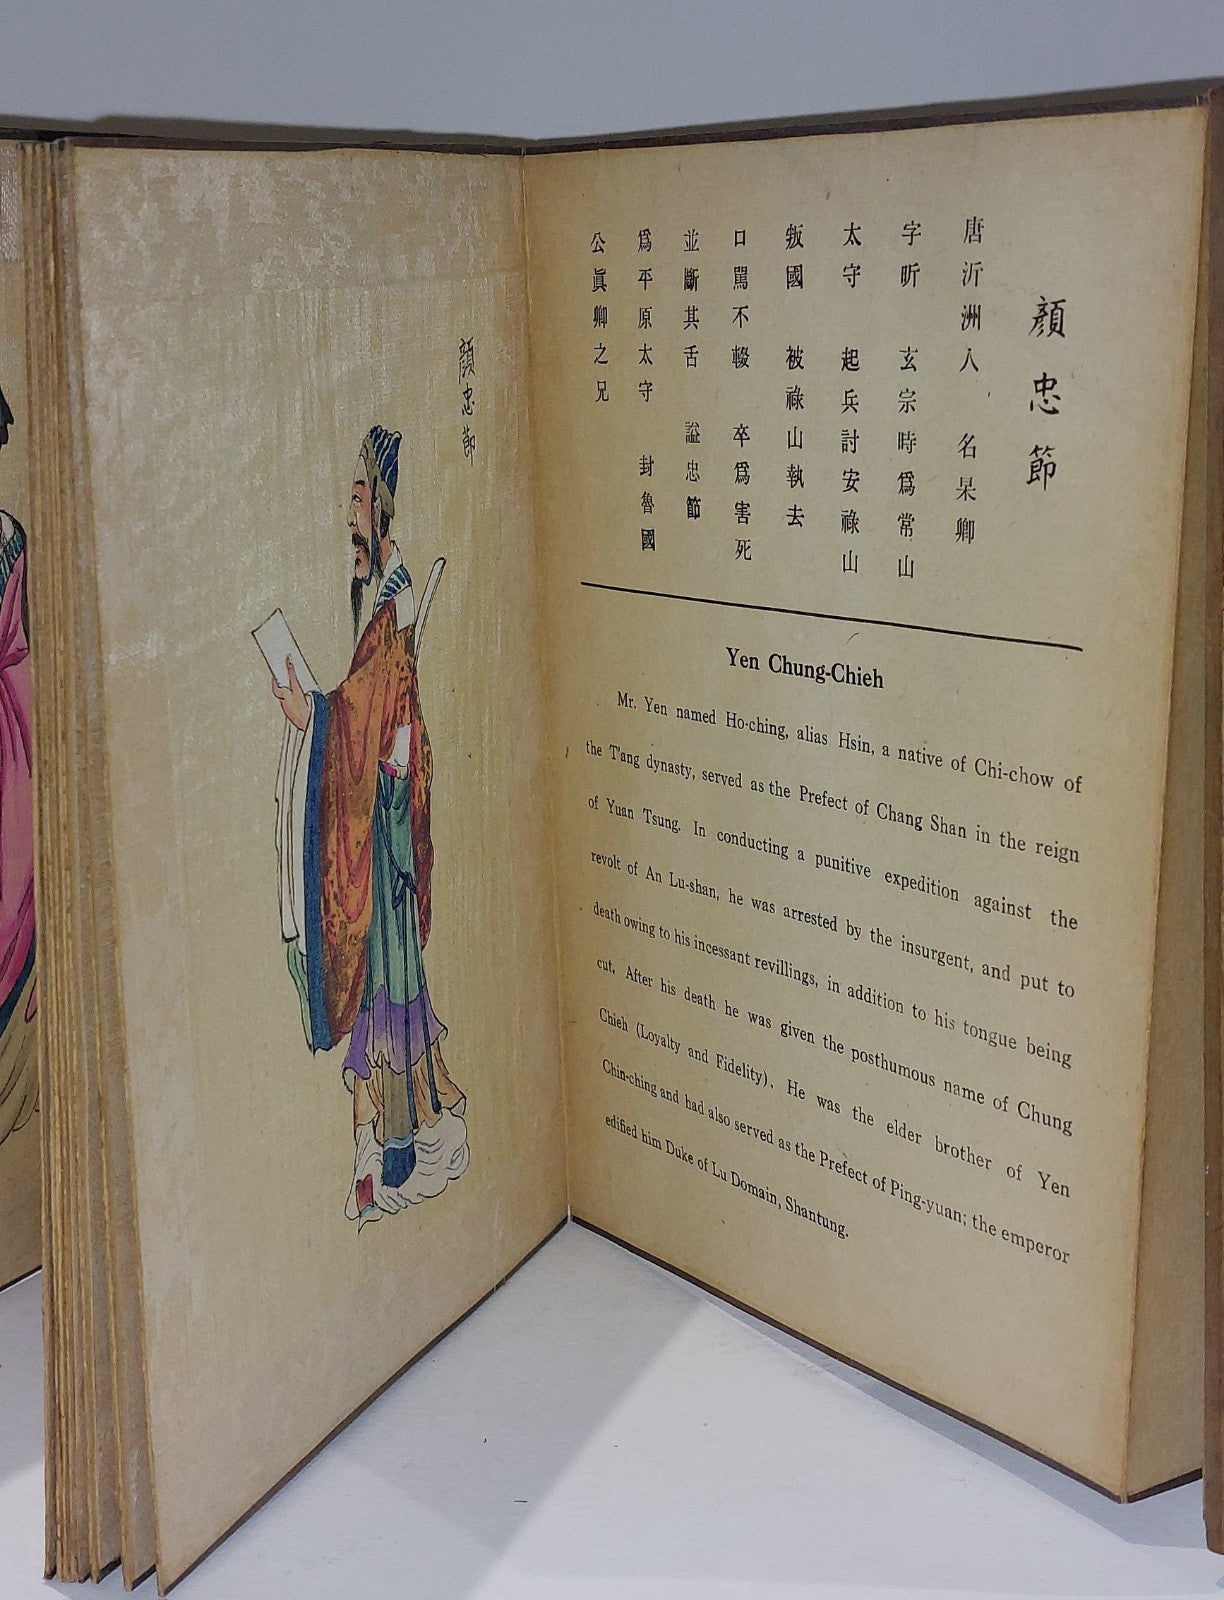 顏忠節
顏忠節
唐沂洲人 名杲卿
字昕 玄宗時爲常山
太守 起兵討安祿山
叛國 被祿山執去
口罵不輟 卒爲害死
並斷其舌 謚忠節
爲平原太守 封魯國
公眞卿之兄
Yen Chung-Chieh
Mr. Yen named Ho-ching, alias Hsin, a native of Chi-chow of
the T'ang dynasty, served as the Prefect of Chang Shan in the reign
of Yuan Tsung. In conducting a punitive expedition against the
revolt of An Lu-shan, he was arrested by the insurgent, and put to
death owing to his incessant revillings, in addition to his tongue being
cut. After his death he was given the posthumous name of Chung
Chieh (Loyalty and Fidelity). He was the elder brother of Yen
Chin-ching and had also served as the Prefect of Ping-yuan; the emperor
edified him Duke of Lu Domain, Shantung.